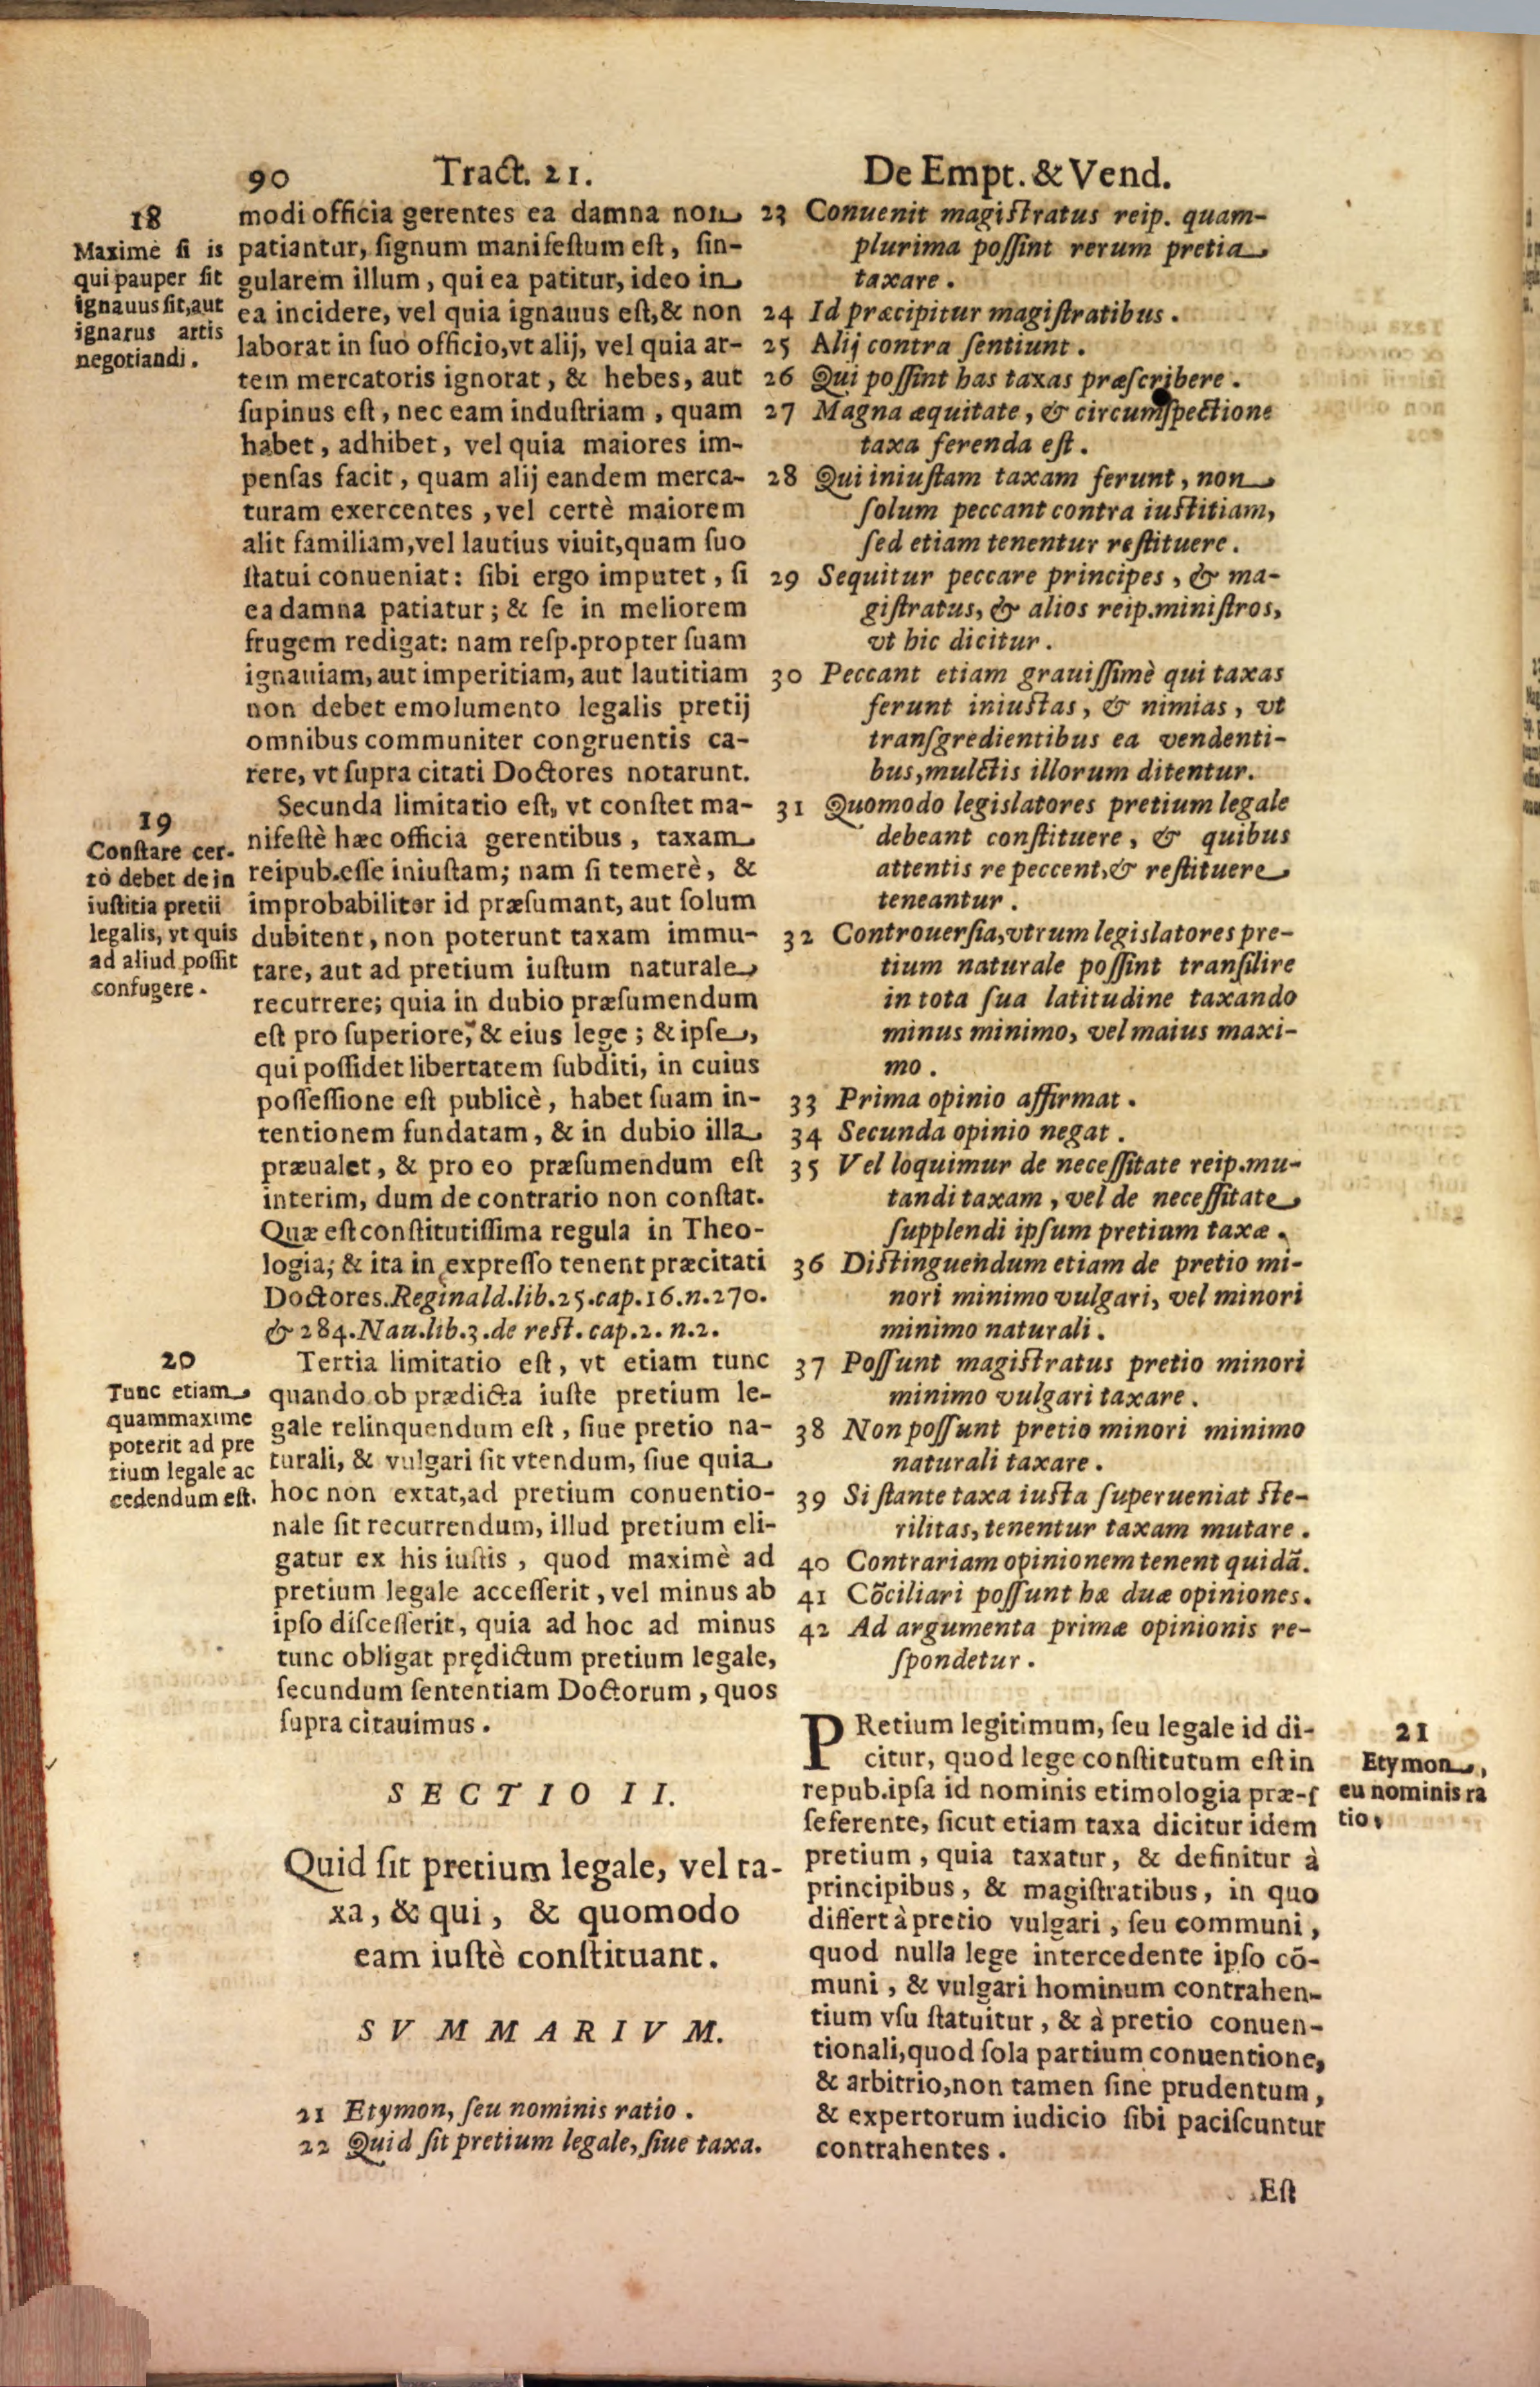 90 Tract. 21. De Empt. & Vend.
18
Maximè si is
qui pauper sit
ignauus sit, aut
ignarus artis
negotiandi.
modi officia gerentes ea damna non
patiantur, signum manifestum est, sin-
gularem illum, qui ea patitur, ideo in
ea incidere, vel quia ignauus est, & non
laborat in suo officio, vt alij, vel quia ar-
tem mercatoris ignorat, & hebes, aut
supinus est, nec eam industriam, quam
habet, adhibet, vel quia maiores im-
pensas facit, quam alij eandem merca-
turam exercentes, vel certè maiorem
alit familiam, vel lautius viuit, quam suo
statui conueniat: sibi ergo imputet, si
ea damna patiatur; & se in meliorem
frugem redigat: nam resp. propter suam
ignauiam, aut imperitiam, aut lautitiam
non debet emolumento legalis pretij
omnibus communiter congruentis ca-
rere, vt supra citati Doctores notarunt.
19
Constare cer-
tò debet de in
iustitia pretii
legalis, vt quis
ad aliud possit
confugere.
Secunda limitatio est, vt constet ma-
nifestè hæc officia gerentibus, taxam
reipub. esse iniustam; nam si temerè, &
improbabiliter id præsumant, aut solum
dubitent, non poterunt taxam immu-
tare, aut ad pretium iustum naturale
recurrere; quia in dubio præsumendum
est pro superiore, & eius lege; & ipse,
qui possidet libertatem subditi, in cuius
possessione est publicè, habet suam in-
tentionem fundatam, & in dubio illa
præualet, & pro eo præsumendum est
interim, dum de contrario non constat.
Quæ est constitutissima regula in Theo-
logia; & ita in expresso tenent præcitati
Doctores. Reginald. lib. 25. cap. 16. n. 270.
& 284. Nau. lib. 3. de rest. cap. 2. n. 2.
20
Tunc etiam
quammaxime
poterit ad pre
tium legale ac
cedendum est.
Tertia limitatio est, vt etiam tunc
quando ob prædicta iuste pretium le-
gale relinquendum est, siue pretio na-
turali, & vulgari sit vtendum, siue quia
hoc non extat, ad pretium conuentio-
nale sit recurrendum, illud pretium eli-
gatur ex his iustis, quod maximè ad
pretium legale accesserit, vel minus ab
ipso discesserit, quia ad hoc ad minus
tunc obligat prędictum pretium legale,
secundum sententiam Doctorum, quos
supra citauimus.
SECTIO II.
Quid sit pretium legale, vel ta-
xa, & qui, & quomodo
eam iustè constituant.
SVMMARIVM.
21 Etymon, seu nominis ratio.
22 Quid sit pretium legale, siue taxa.
23 Conuenit magistratus reip. quam-
plurima possint rerum pretia
taxare.
24 Id præcipitur magistratibus.
25 Alij contra sentiunt.
26 Qui possint has taxas præscribere.
27 Magna æquitate, & circumspectione
taxa ferenda est.
28 Qui iniustam taxam ferunt, non
solum peccant contra iustitiam,
sed etiam tenentur restituere.
29 Sequitur peccare principes, & ma-
gistratus, & alios reip. ministros,
vt hic dicitur.
30 Peccant etiam grauissimè qui taxas
ferunt iniustas, & nimias, vt
transgredientibus ea vendenti-
bus, mulctis illorum ditentur.
31 Quomodo legislatores pretium legale
debeant constituere, & quibus
attentis re peccent, & restituere
teneantur.
32 Controuersia, vtrum legislatores pre-
tium naturale possint transilire
in tota sua latitudine taxando
minus minimo, vel maius maxi-
mo.
33 Prima opinio affirmat.
34 Secunda opinio negat.
35 Vel loquimur de necessitate reip. mu-
tandi taxam, vel de necessitate
supplendi ipsum pretium taxæ.
36 Distinguendum etiam de pretio mi-
nori minimo vulgari, vel minori
minimo naturali.
37 Possunt magistratus pretio minori
minimo vulgari taxare.
38 Non possunt pretio minori minimo
naturali taxare.
39 Si stante taxa iusta superueniat ste-
rilitas, tenentur taxam mutare.
40 Contrariam opinionem tenent quidã.
41 Cõciliari possunt hæ duæ opiniones.
42 Ad argumenta primæ opinionis re-
spondetur.
PRetium legitimum, seu legale id di-
citur, quod lege constitutum est in
repub. ipsa id nominis etimologia præ-s
seferente, sicut etiam taxa dicitur idem
pretium, quia taxatur, & definitur à
principibus, & magistratibus, in quo
differt à pretio vulgari, seu communi,
quod nulla lege intercedente ipso cõ-
muni, & vulgari hominum contrahen-
tium vsu statuitur, & à pretio conuen-
tionali, quod sola partium conuentione,
& arbitrio, non tamen sine prudentum,
& expertorum iudicio sibi paciscuntur
contrahentes.
21
Etymon,
eu nominis ra
tio.
Est